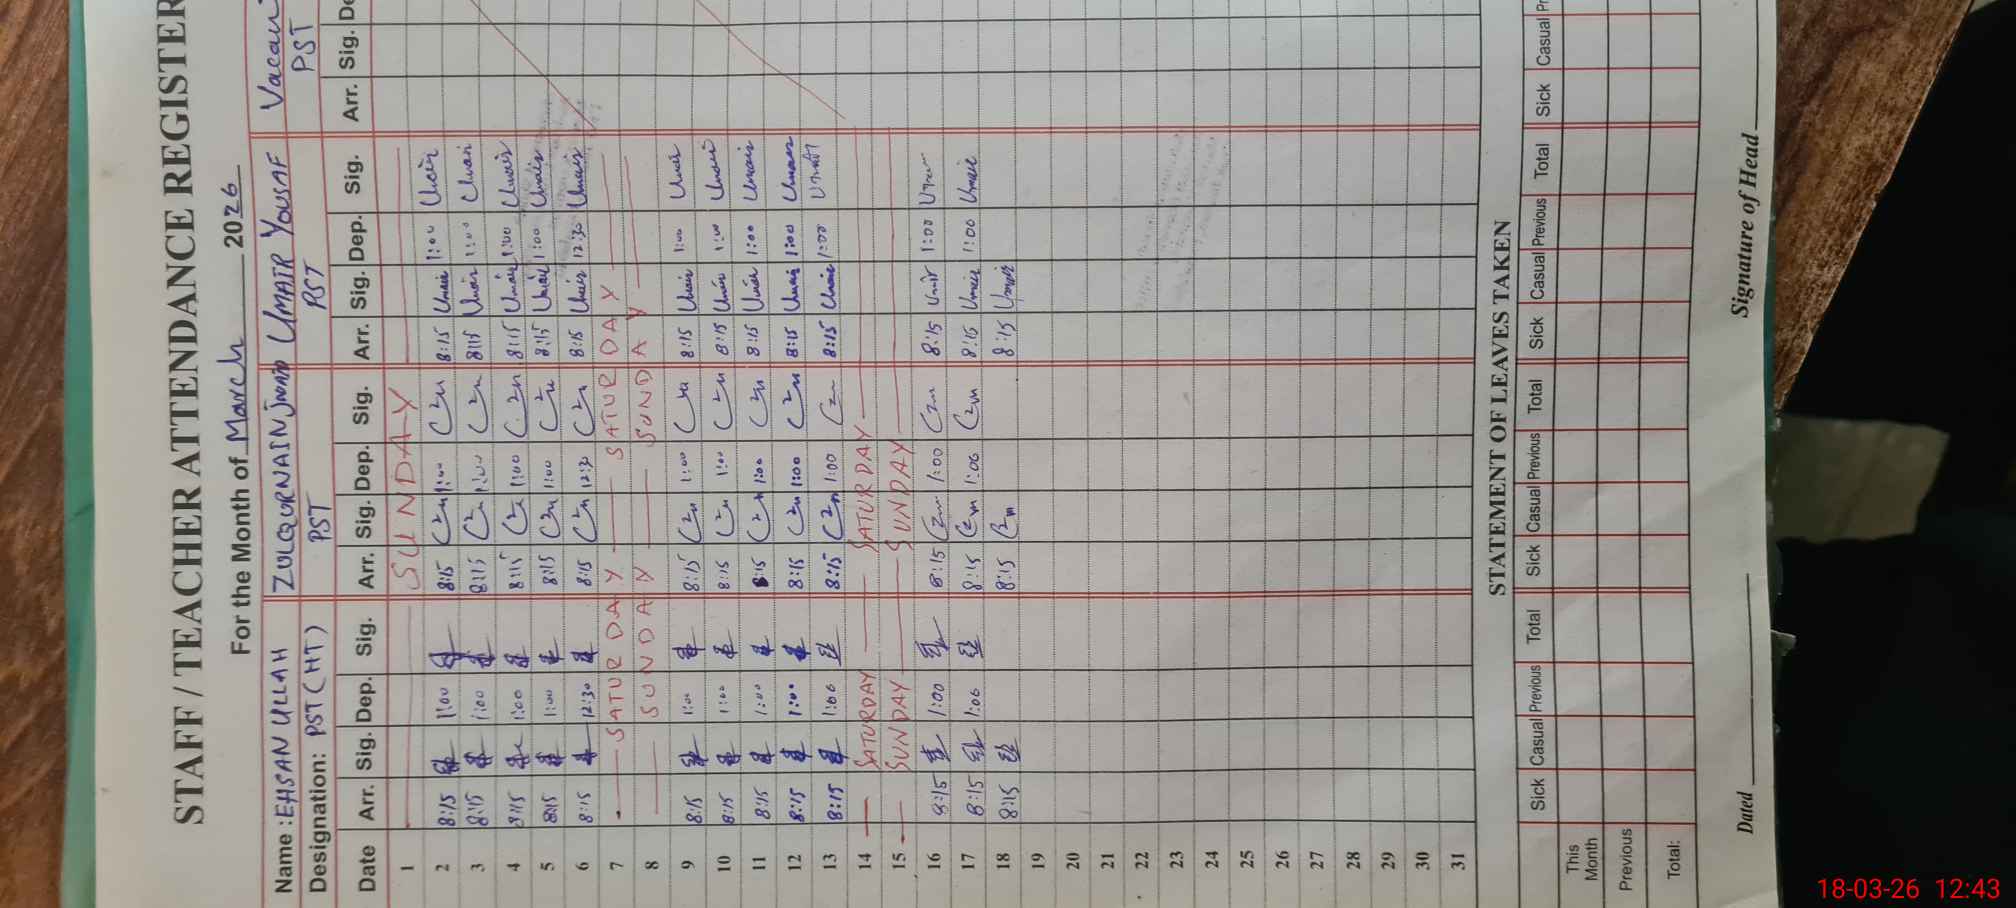 STAFF / TEACHER ATTENDANCE REGISTER
For the Month of March 2026
Name : EHSAN ULLAH ZULQURNAIN JAVAID UMAIR YOUSAF Vacant
Designation: PST (HT) PST PST PST
Date Arr. Sig. Dep. Sig. Arr. Sig. Dep. Sig. Arr. Sig. Dep. Sig. Arr. Sig.
1 SUNDAY
2 8:15 1:00 8:15 1:00 8:15 Umair 1:00 Umair
3 8:15 1:00 8:15 1:00 8:15 Umair 1:00 Umair
4 8:15 1:00 8:15 1:00 8:15 Umair 1:00 Umair
5 8:15 1:00 8:15 1:00 8:15 Umair 1:00 Umair
6 8:15 12:30 8:15 12:30 8:15 Umair 12:30 Umair
7 SATURDAY SATURDAY
8 SUNDAY SUNDAY
9 8:15 1:00 8:15 1:00 8:15 Umair 1:00 Umair
10 8:15 1:00 8:15 1:00 8:15 Umair 1:00 Umair
11 8:15 1:00 8:15 1:00 8:15 Umair 1:00 Umair
12 8:15 1:00 8:15 1:00 8:15 Umair 1:00 Umair
13 8:15 1:00 8:15 1:00 8:15 Umair 1:00 Umair
14 SATURDAY SATURDAY
15 SUNDAY SUNDAY
16 8:15 1:00 8:15 1:00 8:15 Umair 1:00 Umair
17 8:15 1:00 8:15 1:00 8:15 Umair 1:00 Umair
18 8:15 8:15 8:15 Umair
19
20
21
22
23
24
25
26
27
28
29
30
31
STATEMENT OF LEAVES TAKEN
Sick Casual Previous Total Sick Casual Previous Total Sick Casual Previous Total Sick Casual
This Month
Previous
Total:
Dated Signature of Head
18-03-26 12:43